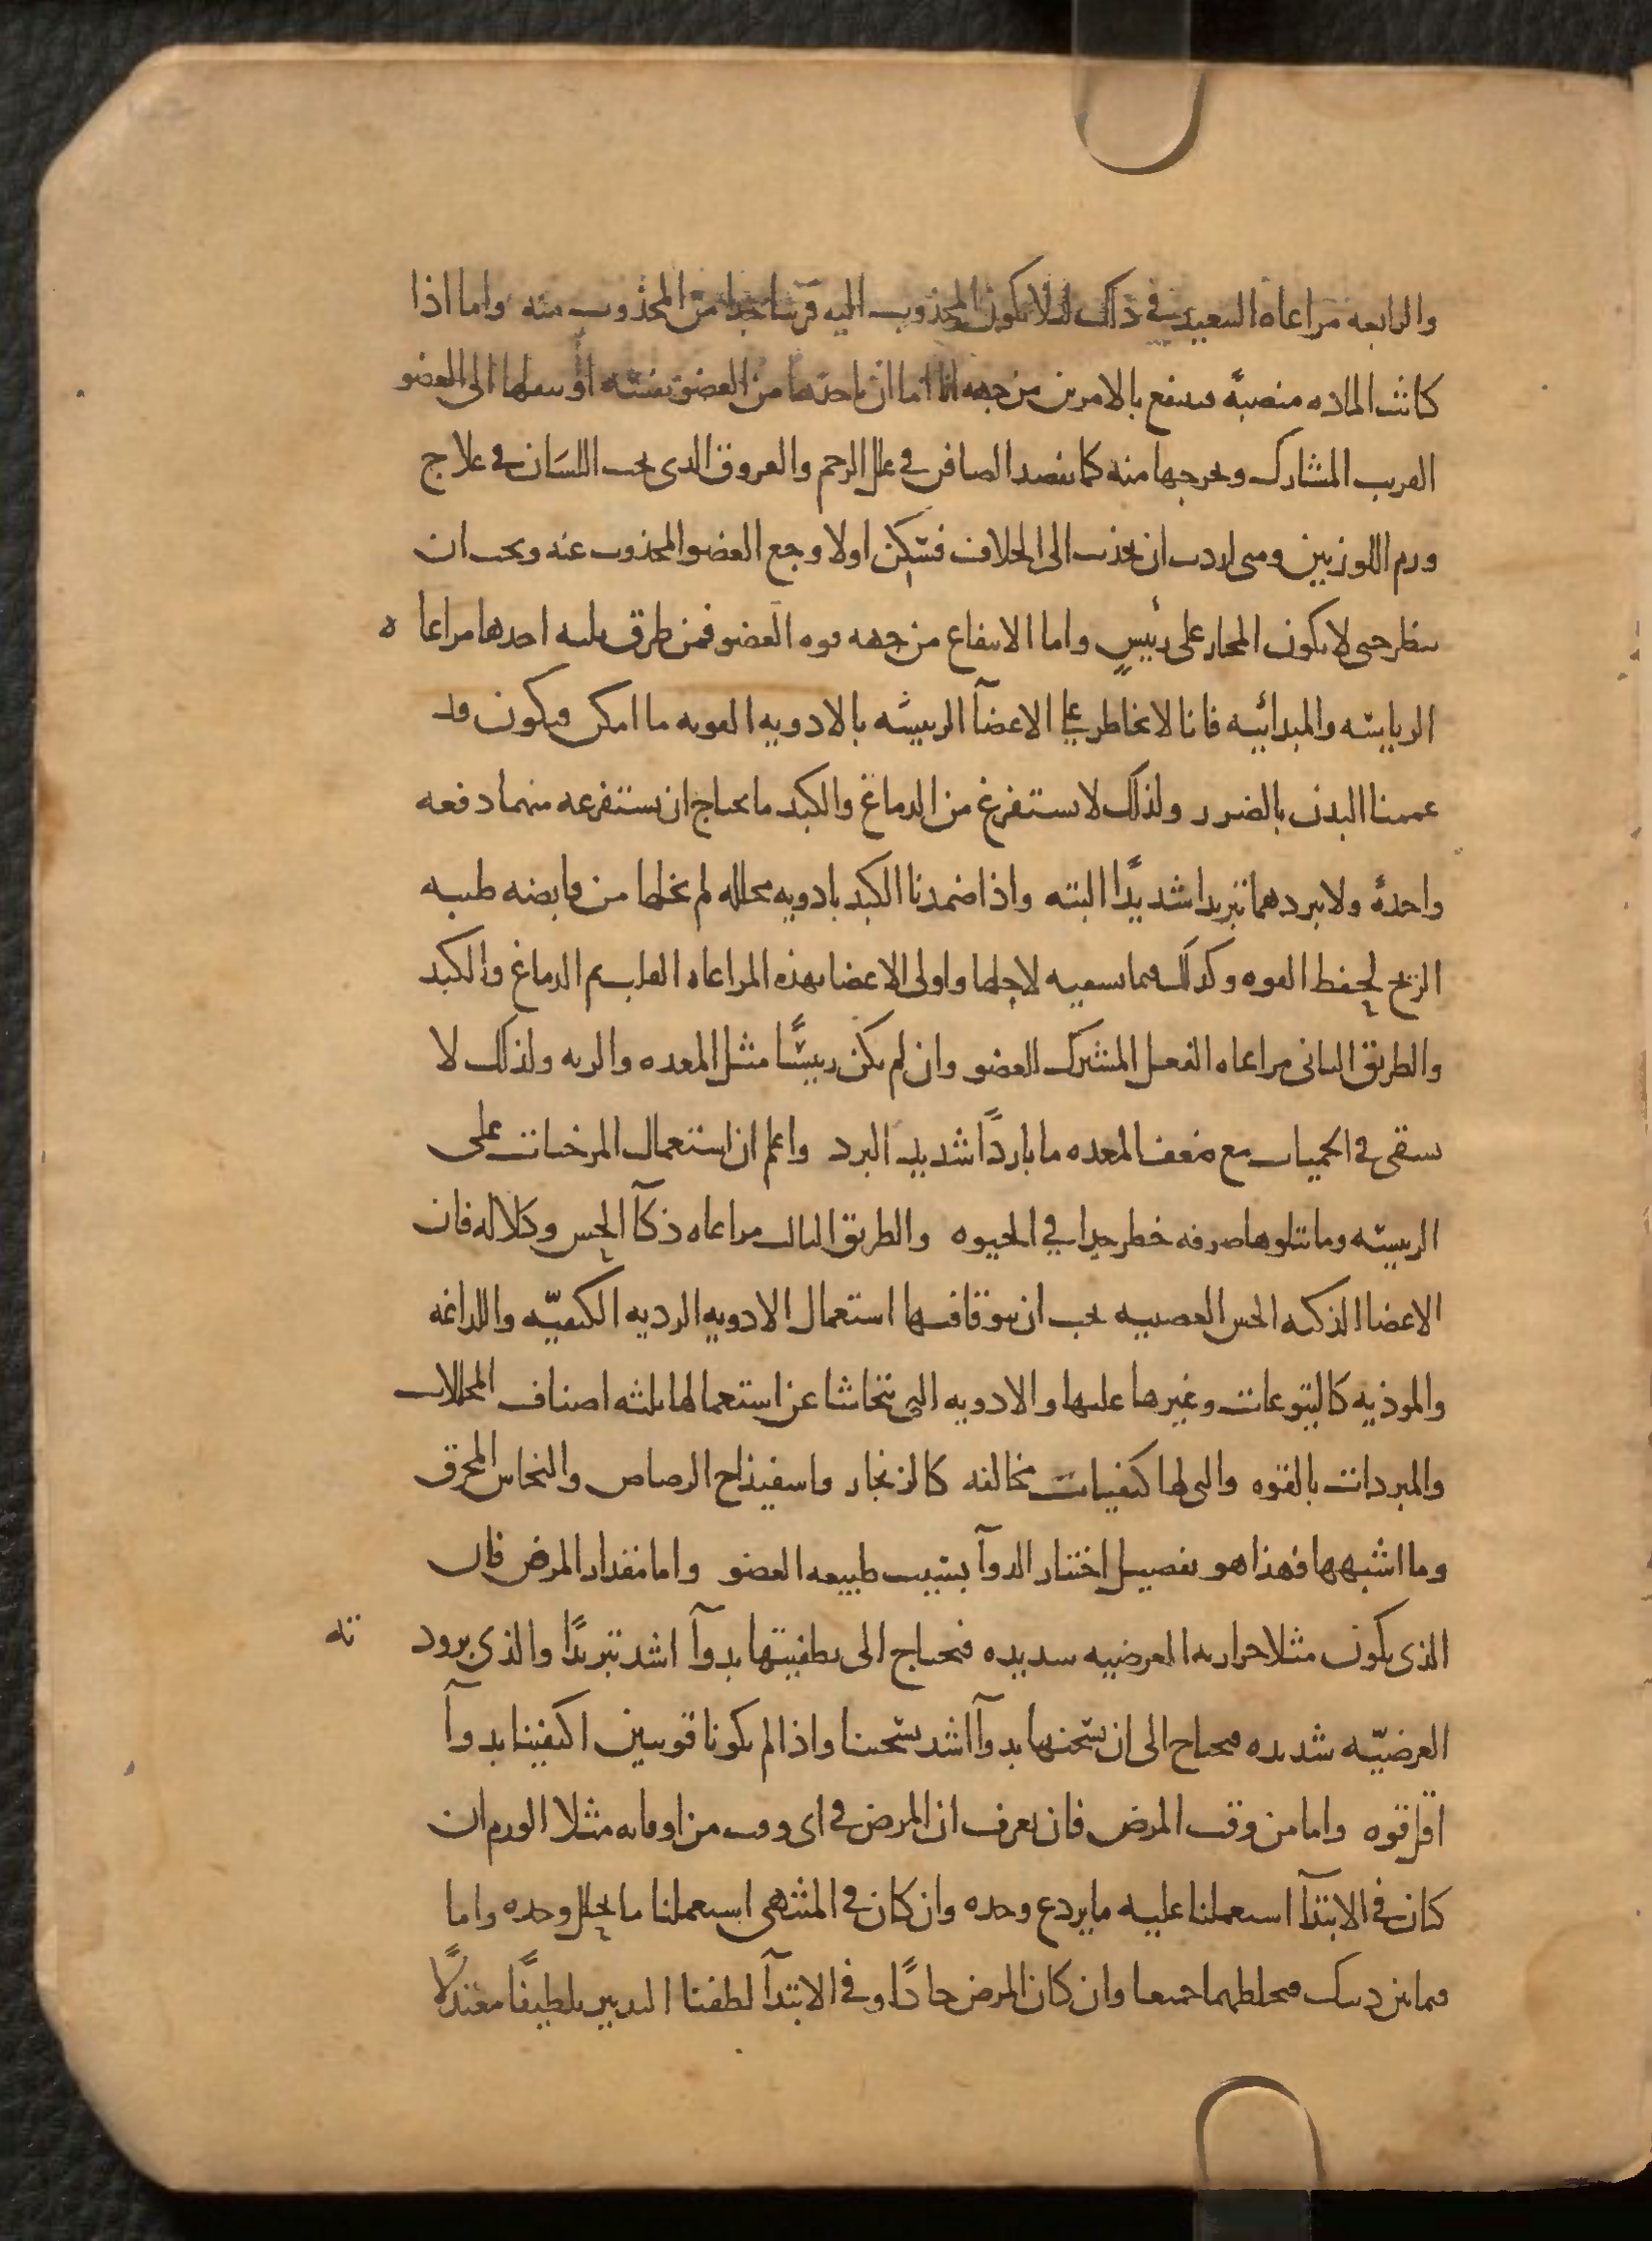 والرابعه مراعاه التبعيد في ذلك لئلا يكون المجذوب اليه قريبا جدا من المجذوب منه واما اذا
كانت الماده منصبةً فينتفع بالامرين من جهه انا اما ان ناخذها من العضو نفسه او ننقلها الى العضو
القريب المشارك ونخرجها منه كما نفصد الصافن في علل الرحم والعروق الذى تحت اللسان في علاج
ورم اللوزتين ومتى اردت ان تجذب الى الخلاف فسكن اولا وجع العضو المجذوب عنه ويجب ان
ينظر حتى لا يكون المجاز على رئيسٍ واما الانتفاع من جهه قوه العضو فمن طرق ثلثه احدها مراعا ه
الرياسه والمبدائيه فانا لا نخاطر على الاعضآ الرييسه بالادويه القويه ما امكن فيكون قد
عممنا البدن بالضرر ولذلك لا نستفرغ من الدماغ والكبد ما يحتاج ان نستفرغه منهما دفعه
واحدةً ولا نبردهما تبريدا شديدًا البته واذا ضمدنا الكبد بادويه محلله لم نخلها من قابضه طيبه
الريح لحفظ القوه وكذلك فيما نسقيه لاجلها واولى الاعضا بهذه المراعاه القلب ثم الدماغ والكبد
والطريق الثانى مراعاه الفعل المشترك للعضو وان لم يكن رييسًا مثل المعده والريه ولذلك لا
نسقى في الحميات مع ضعف المعده ما باردًا شديد البرد واعلم ان استعمال المرخيات على
الرييسه وما تتلوها صرفه خطر جدا في الحيوه والطريق الثالث مراعاه ذكآ الحس وكلاله فان
الاعضا الذكيه الحس العصبيه يجب ان نتوقا فيها استعمال الادويه الرديه الكيفيّه واللداغه
والموذيه كاليتوعات وغيرها عليها والادويه التي نتحاشا عن استعمالها ثلثه اصناف المحللات
والمبردات بالقوه والتى لها كيفيات مخالفه كالزنجار واسفيذاج الرصاص والنحاس المحرق
وما اشبهها فهذا هو تفصيل اختيار الدوآ بسبب طبيعه العضو واما مقدار المرض فان
الذى يكون مثلا حرارته العرضيه شديده فيحتاج الى تطفيتها بدوآ اشد تبريدًا والذى برود ته
العرضيّه شديده فيحتاج الى ان نسخنها بدوآ اشد تسخينا واذا لم يكونا قويين اكتفينا بدوآ
اقل قوه واما من وقت المرض فان نعرف ان المرض في اى وقت من اوقاته مثلا الورم ان
كان في الابتدآ استعملنا عليه ما يردع وحده وان كان في المنتهى استعملنا ما يحلل وحده واما
فيما بين ذينك فنخلطهما جميعا وان كان المرض حادًا وفي الابتدآ لطفنا التدبير تلطيفًا معتدلًا